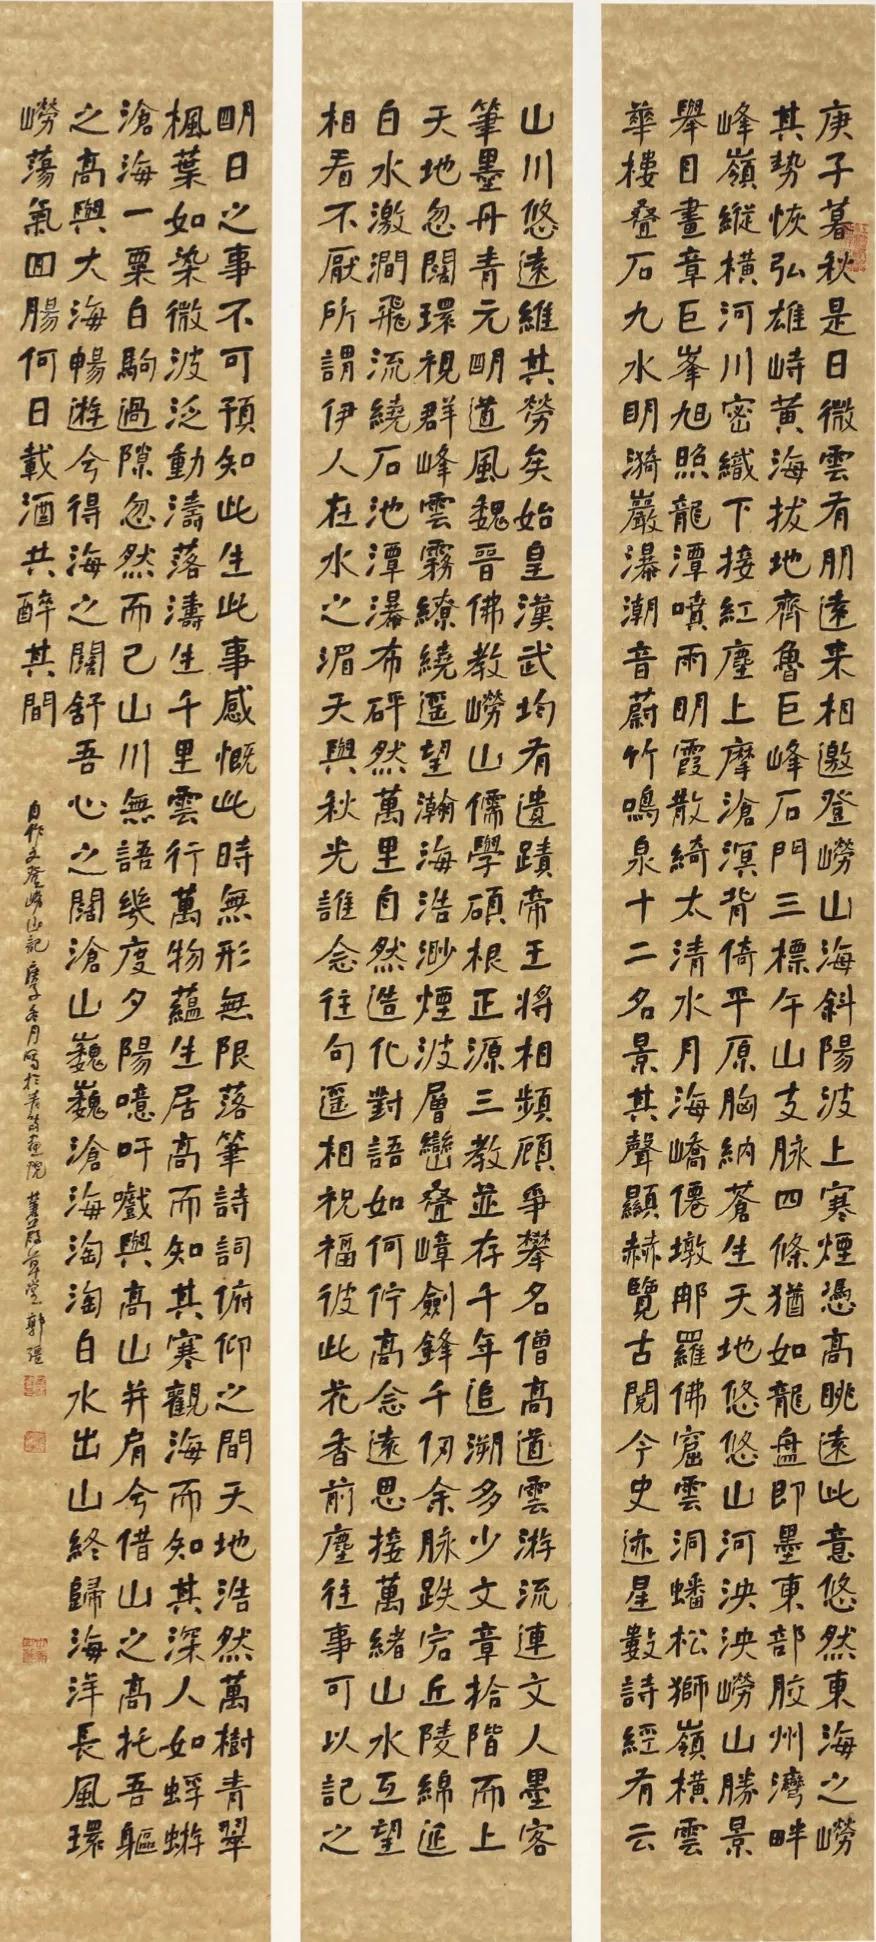 庚子暮秋是日微雲有朋遠来相邀登嶗山海斜陽波上寒煙憑高眺遠此意悠然東海之嶗
其勢恢弘雄峙黃海拔地齊魯巨峰石門三標午山支脉四條猶如龍盤即墨東部胶州灣畔
峰嶺縱橫河川密織下接紅塵上摩滄溟背倚平原胸納蒼生天地悠悠山河泱泱嶗山勝景
舉目畫章巨峯旭照龍潭噴雨明霞散綺太清水月海嶠僊墩那羅佛窟雲洞蟠松獅嶺橫雲
華樓叠石九水明漪巖瀑潮音蔚竹鳴泉十二名景其聲顯赫覽古閱今史迹星數詩經有云
山川悠遠維其勞矣始皇漢武均有遺蹟帝王將相頻顧爭攀名僧高道雲游流連文人墨客
筆墨丹青元明道風魏晉佛教嶗山儒學碩根正源三教並存千年追溯多少文章拾階而上
天地忽闊環視群峰雲霧繚繞遥望瀚海浩渺煙波層巒叠嶂劍鋒千仞余脉跌宕丘陵綿延
白水激澗飛流繞石池潭瀑布砰然萬里自然造化對語如何佇高念遠思接萬緒山水互望
相看不厭所謂伊人在水之湄天與秋光誰念往句遥相祝福彼此花香前塵往事可以記之
明日之事不可預知此生此事感慨此時無形無限落筆詩詞俯仰之間天地浩然萬樹青翠
楓葉如染微波泛動濤落濤生千里雲行萬物蘊生居高而知其寒觀海而知其深人如蜉蝣
滄海一粟白駒過隙忽然而已山川無語幾度夕陽噫吁戲與高山并肩今借山之高托吾軀
之高與大海暢遊今得海之闊舒吾心之闊滄山巍巍滄海淘淘白水出山終歸海洋長風環
嶗蕩氣囬腸何日載酒共醉其間
自作文登嶗山記 庚子冬月寫於青島畫院 郭強